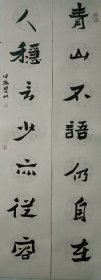 青山不語仍自在
人穩言少亦從容